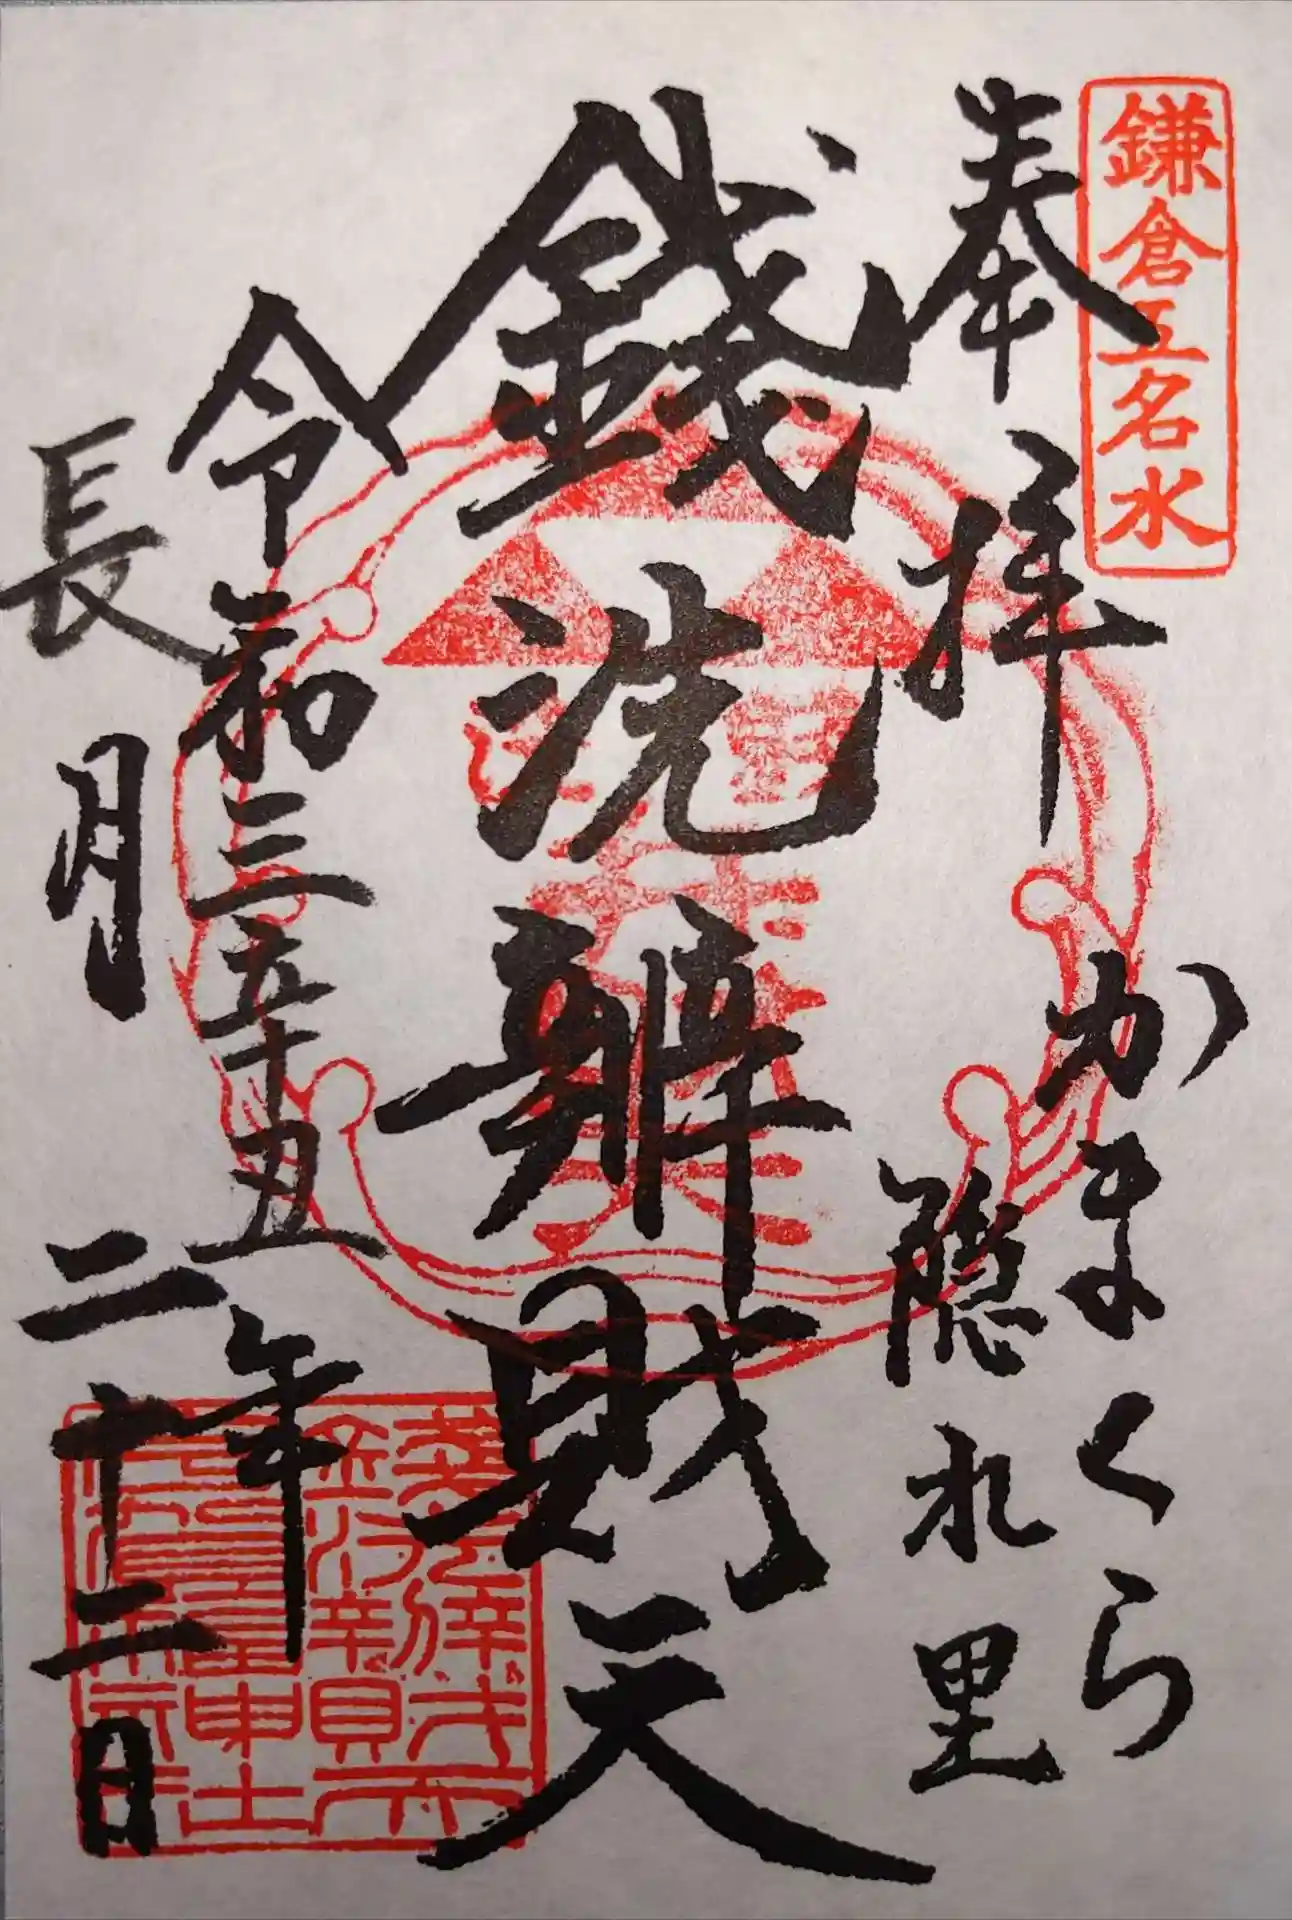 鎌倉五名水
奉拝
かまくら
隠れ里
銭洗辧財天
令和三辛丑年
長月
二十二日